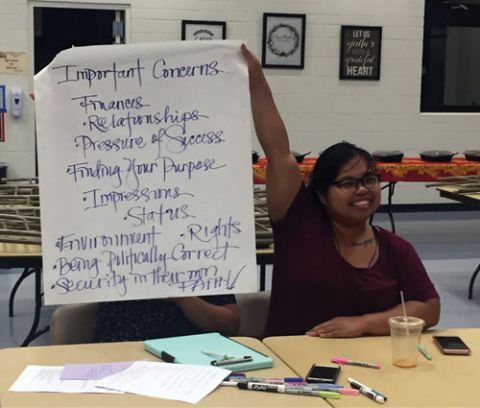 Important Concerns
· Finances
· Relationships
· Pressure of Success
· Finding Your Purpose
· Impressions
Status
· Environment · Rights
· Being Politically Correct
· Security in their own
FAITH!
LET US
gather
with a
grateful
HEART